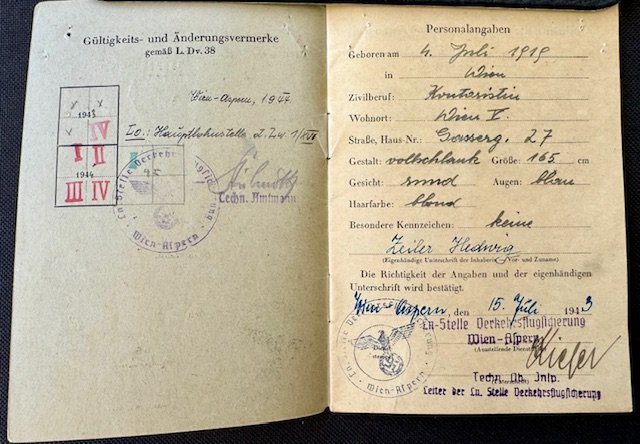 Gültigkeits- und Änderungsvermerke
gemäß L. Dv. 38
x x
1943
x IV
I II
1944
III IV
Wien-Aspern, 1944
Techn. Amtmann
Ln-Stelle Verkehrsflugsicherung
Wien-Aspern
Personalangaben
Geboren am 4. Juli 1919
in Wien
Zivilberuf: Kontoristin
Wohnort: Wien V.
Straße, Haus-Nr.: Gasserg. 27
Gestalt: vollschlank Größe: 165 cm
Gesicht: rund Augen: blau
Haarfarbe: blond
Besondere Kennzeichen: keine
Zeiler Hedwig
(Eigenhändige Unterschrift der Inhaberin, Vor- und Zuname)
Die Richtigkeit der Angaben und der eigenhändigen
Unterschrift wird bestätigt.
Wien Aspern, den 15. Juli 1943
Ln-Stelle Verkehrsflugsicherung
Wien-Aspern
(Ausstellende Dienststelle)
Kiefer
Techn. Ob. Insp.
Leiter der Ln. Stelle Verkehrsflugsicherung
Wien-Aspern